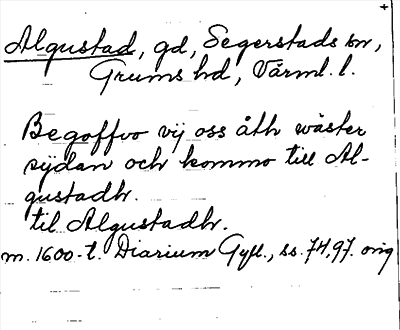 Algustad, gd, Segerstads sn,
Grums hd, Värml. l.
Begoffvo vij oss åth wäster
sijdan och kommo till Al-
gustadh.
til Algustadh.
m. 1600-t. Diarium Gyll., ss. 74, 97. orig